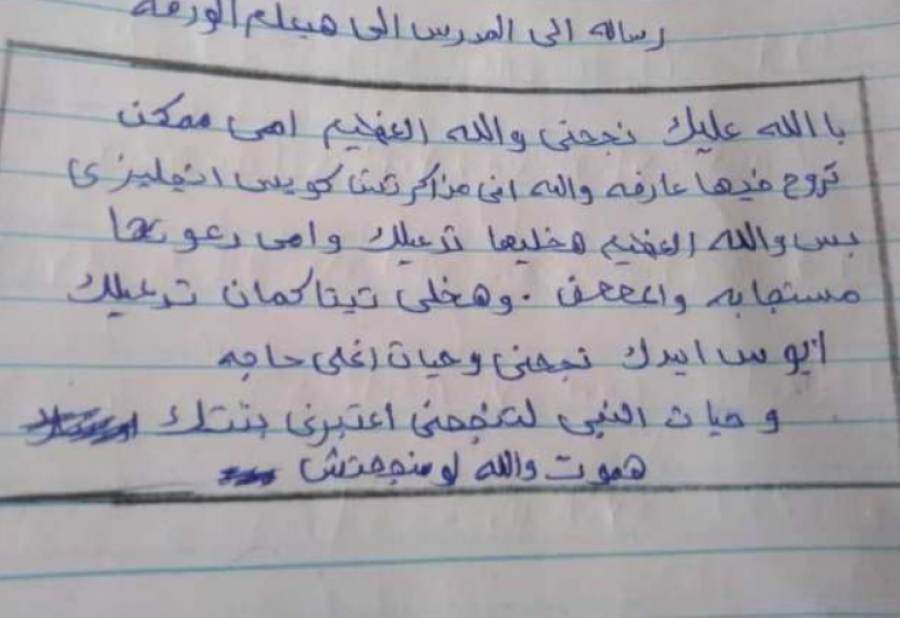 رساله الى المدرس الى هيعلم الورقة
با الله عليك نجحنى والله العظيم امى ممكن
تروح فيها عارفه والله انى مذاكرتش كويس انجليزى
بس والله العظيم هخليها تدعيلك وامى دعوتها
مستجابه واععععف . وهخلى تيتا كمان تدعيلك
ابوس ايدك نجحنى وحيات اغلى حاجه
وحيات النبى لتنجحنى اعتبرنى بنتك
هموت والله لو منجحتش